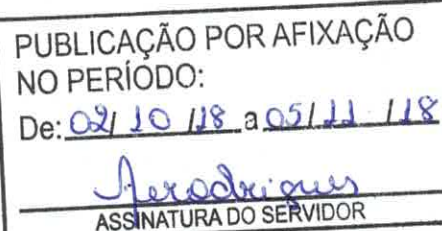 PUBLICAÇÃO POR AFIXAÇÃO
NO PERÍODO:
De: 02/ 10 /18 a 05/ 11 /18
Aerodrigues
ASSINATURA DO SERVIDOR